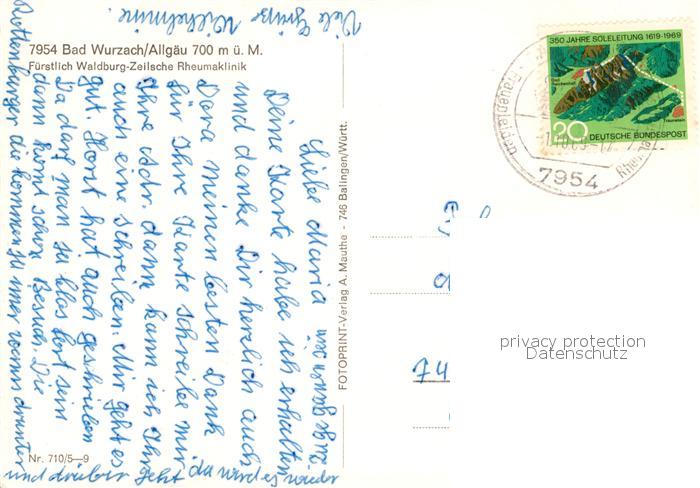 7954 Bad Wurzach/Allgäu 700 m ü. M.
Fürstlich Waldburg-Zeilsche Rheumaklinik
Liebe Maria
Deine Karte habe ich erhalten
und danke Dir herzlich auch
Dora meinen besten Dank
für Ihre Karte schreibe mir
Ihre Adr. dann kann ich Ihr
auch eine schreiben. Mir geht es
gut. Horst hat auch geschrieben
Da darf man so los fort sein
dann kommt schon Besuch. Die
Rottenburger die kommen zu immer wann drunter
und drüber geht da wird es wieder
Viele Grüße Wilhelmine.
Nr. 710/5—9
FOTOPRINT-Verlag A. Mauthe - 746 Balingen/Württ.
350 JAHRE SOLELEITUNG 1619-1969
Bad Reichenhall
Traunstein
20
DEUTSCHE BUNDESPOST
7954
74
privacy protection
Datenschutz